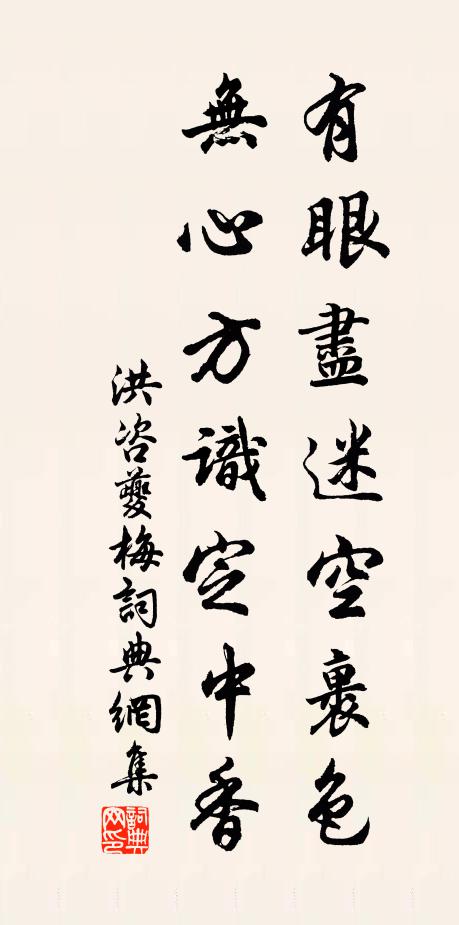 有眼盡迷空裏色
無心方識定中香
洪咨夔梅詞典網集
詞典網印